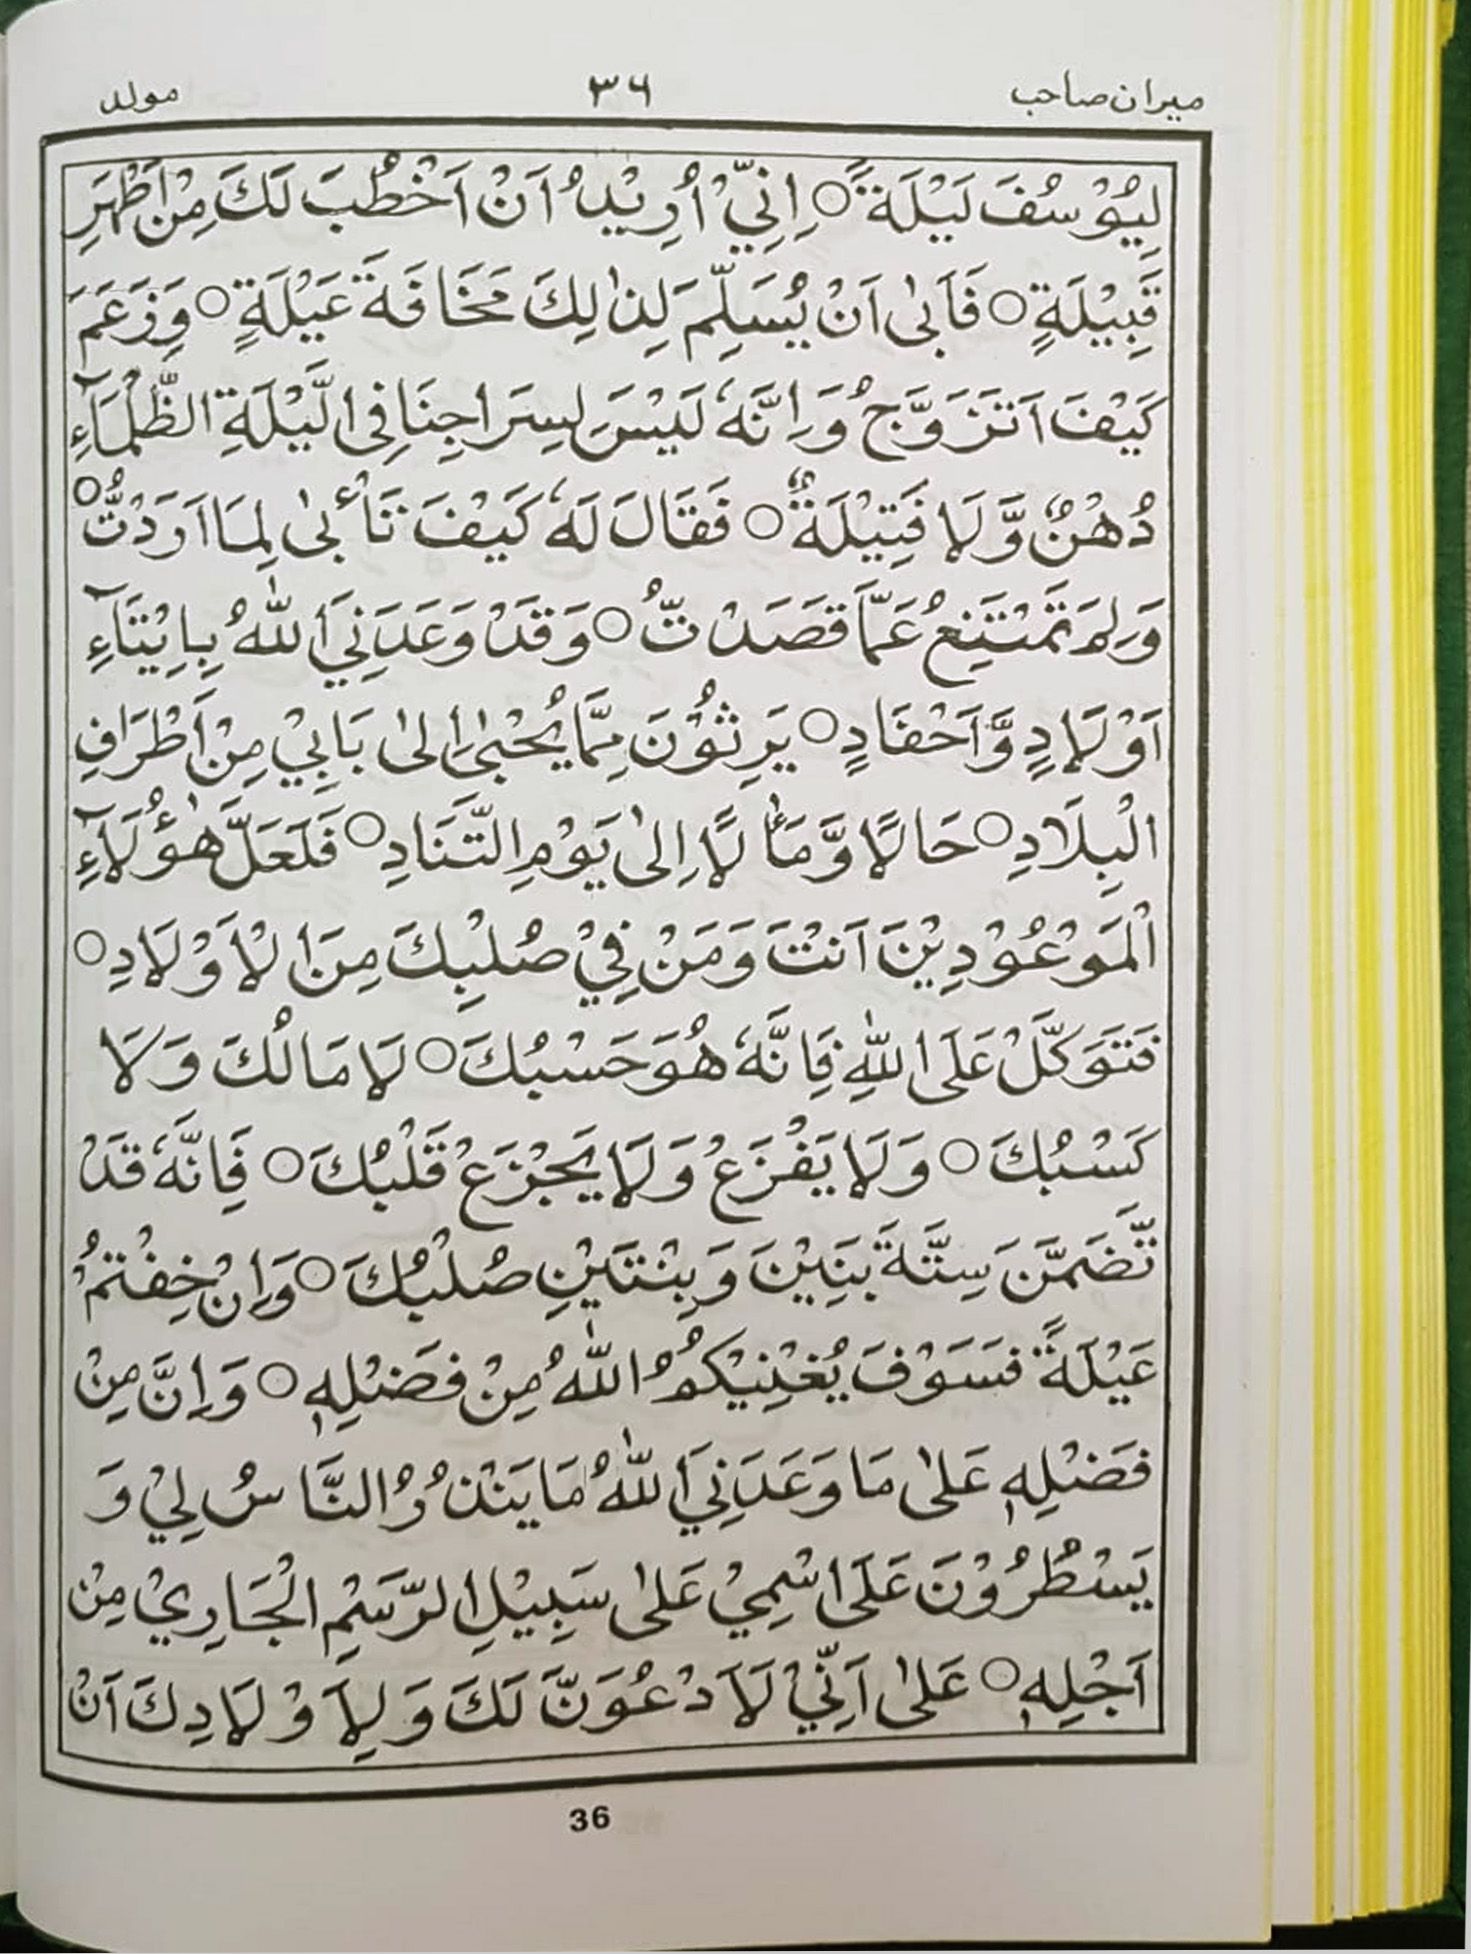 ميران صاحب ٣٦ مولد
لِيُوْسُفَ لَيْلَةً ○ اِنِّيْ اُرِيْدُ اَنْ اَخْطُبَ لَكَ مِنْ اَطْهَرِ
قَبِيْلَةٍ ○ فَاَبٰى اَنْ يُسَلِّمَ لِذٰلِكَ مَخَافَةَ عَيْلَةٍ ○ وَزَعَمَ
كَيْفَ اَتَزَوَّجُ وَاِنَّهٗ لَيْسَ لِسِرَاجِنَا فِى الَّيْلَةِ الظَّلْمَآءِ
دُهْنٌ وَّلَا فَتِيْلَةٌ ○ فَقَالَ لَهٗ كَيْفَ تَأْبٰى لِمَا اَرَدْتُّ ○
وَلِمَ تَمْتَنِعُ عَمَّا قَصَدْتُّ ○ وَقَدْ وَعَدَنِيَ اللّٰهُ بِاِيْتَآءِ
اَوْلَادٍ وَّاَحْفَادٍ ○ يَرِثُوْنَ مِمَّا يُجْبٰى اِلٰى بَابِيْ مِنْ اَطْرَافِ
الْبِلَادِ ○ حَالًا وَّمَاٰلًا اِلٰى يَوْمِ التَّنَادِ ○ فَلَعَلَّ هٰؤُلَآءِ
الْمَوْعُوْدِيْنَ اَنْتَ وَمَنْ فِيْ صُلْبِكَ مِنَ الْاَوْلَادِ ○
فَتَوَكَّلْ عَلَى اللّٰهِ فَاِنَّهٗ هُوَ حَسْبُكَ ○ لَا مَالُكَ وَلَا
كَسْبُكَ ○ وَلَا يَفْزَعْ وَلَا يَجْزَعْ قَلْبُكَ ○ فَاِنَّهٗ قَدْ
تَّضَمَّنَ سِتَّةَ بَنِيْنَ وَبِنْتَيْنِ صُلْبُكَ ○ وَاِنْ خِفْتُمْ
عَيْلَةً فَسَوْفَ يُغْنِيْكُمُ اللّٰهُ مِنْ فَضْلِهٖ ○ وَاِنَّ مِنْ
فَضْلِهٖ عَلٰى مَا وَعَدَنِيَ اللّٰهُ مَا يَنْذُرُ النَّاسُ لِيْ وَ
يَسْطُرُوْنَ عَلَى اسْمِيْ عَلٰى سَبِيْلِ الرَّسْمِ الْجَارِيْ مِنْ
اَجْلِهٖ ○ عَلٰى اَنِّيْ لَاَدْعُوَنَّ لَكَ وَلِاَوْلَادِكَ اَنْ
36